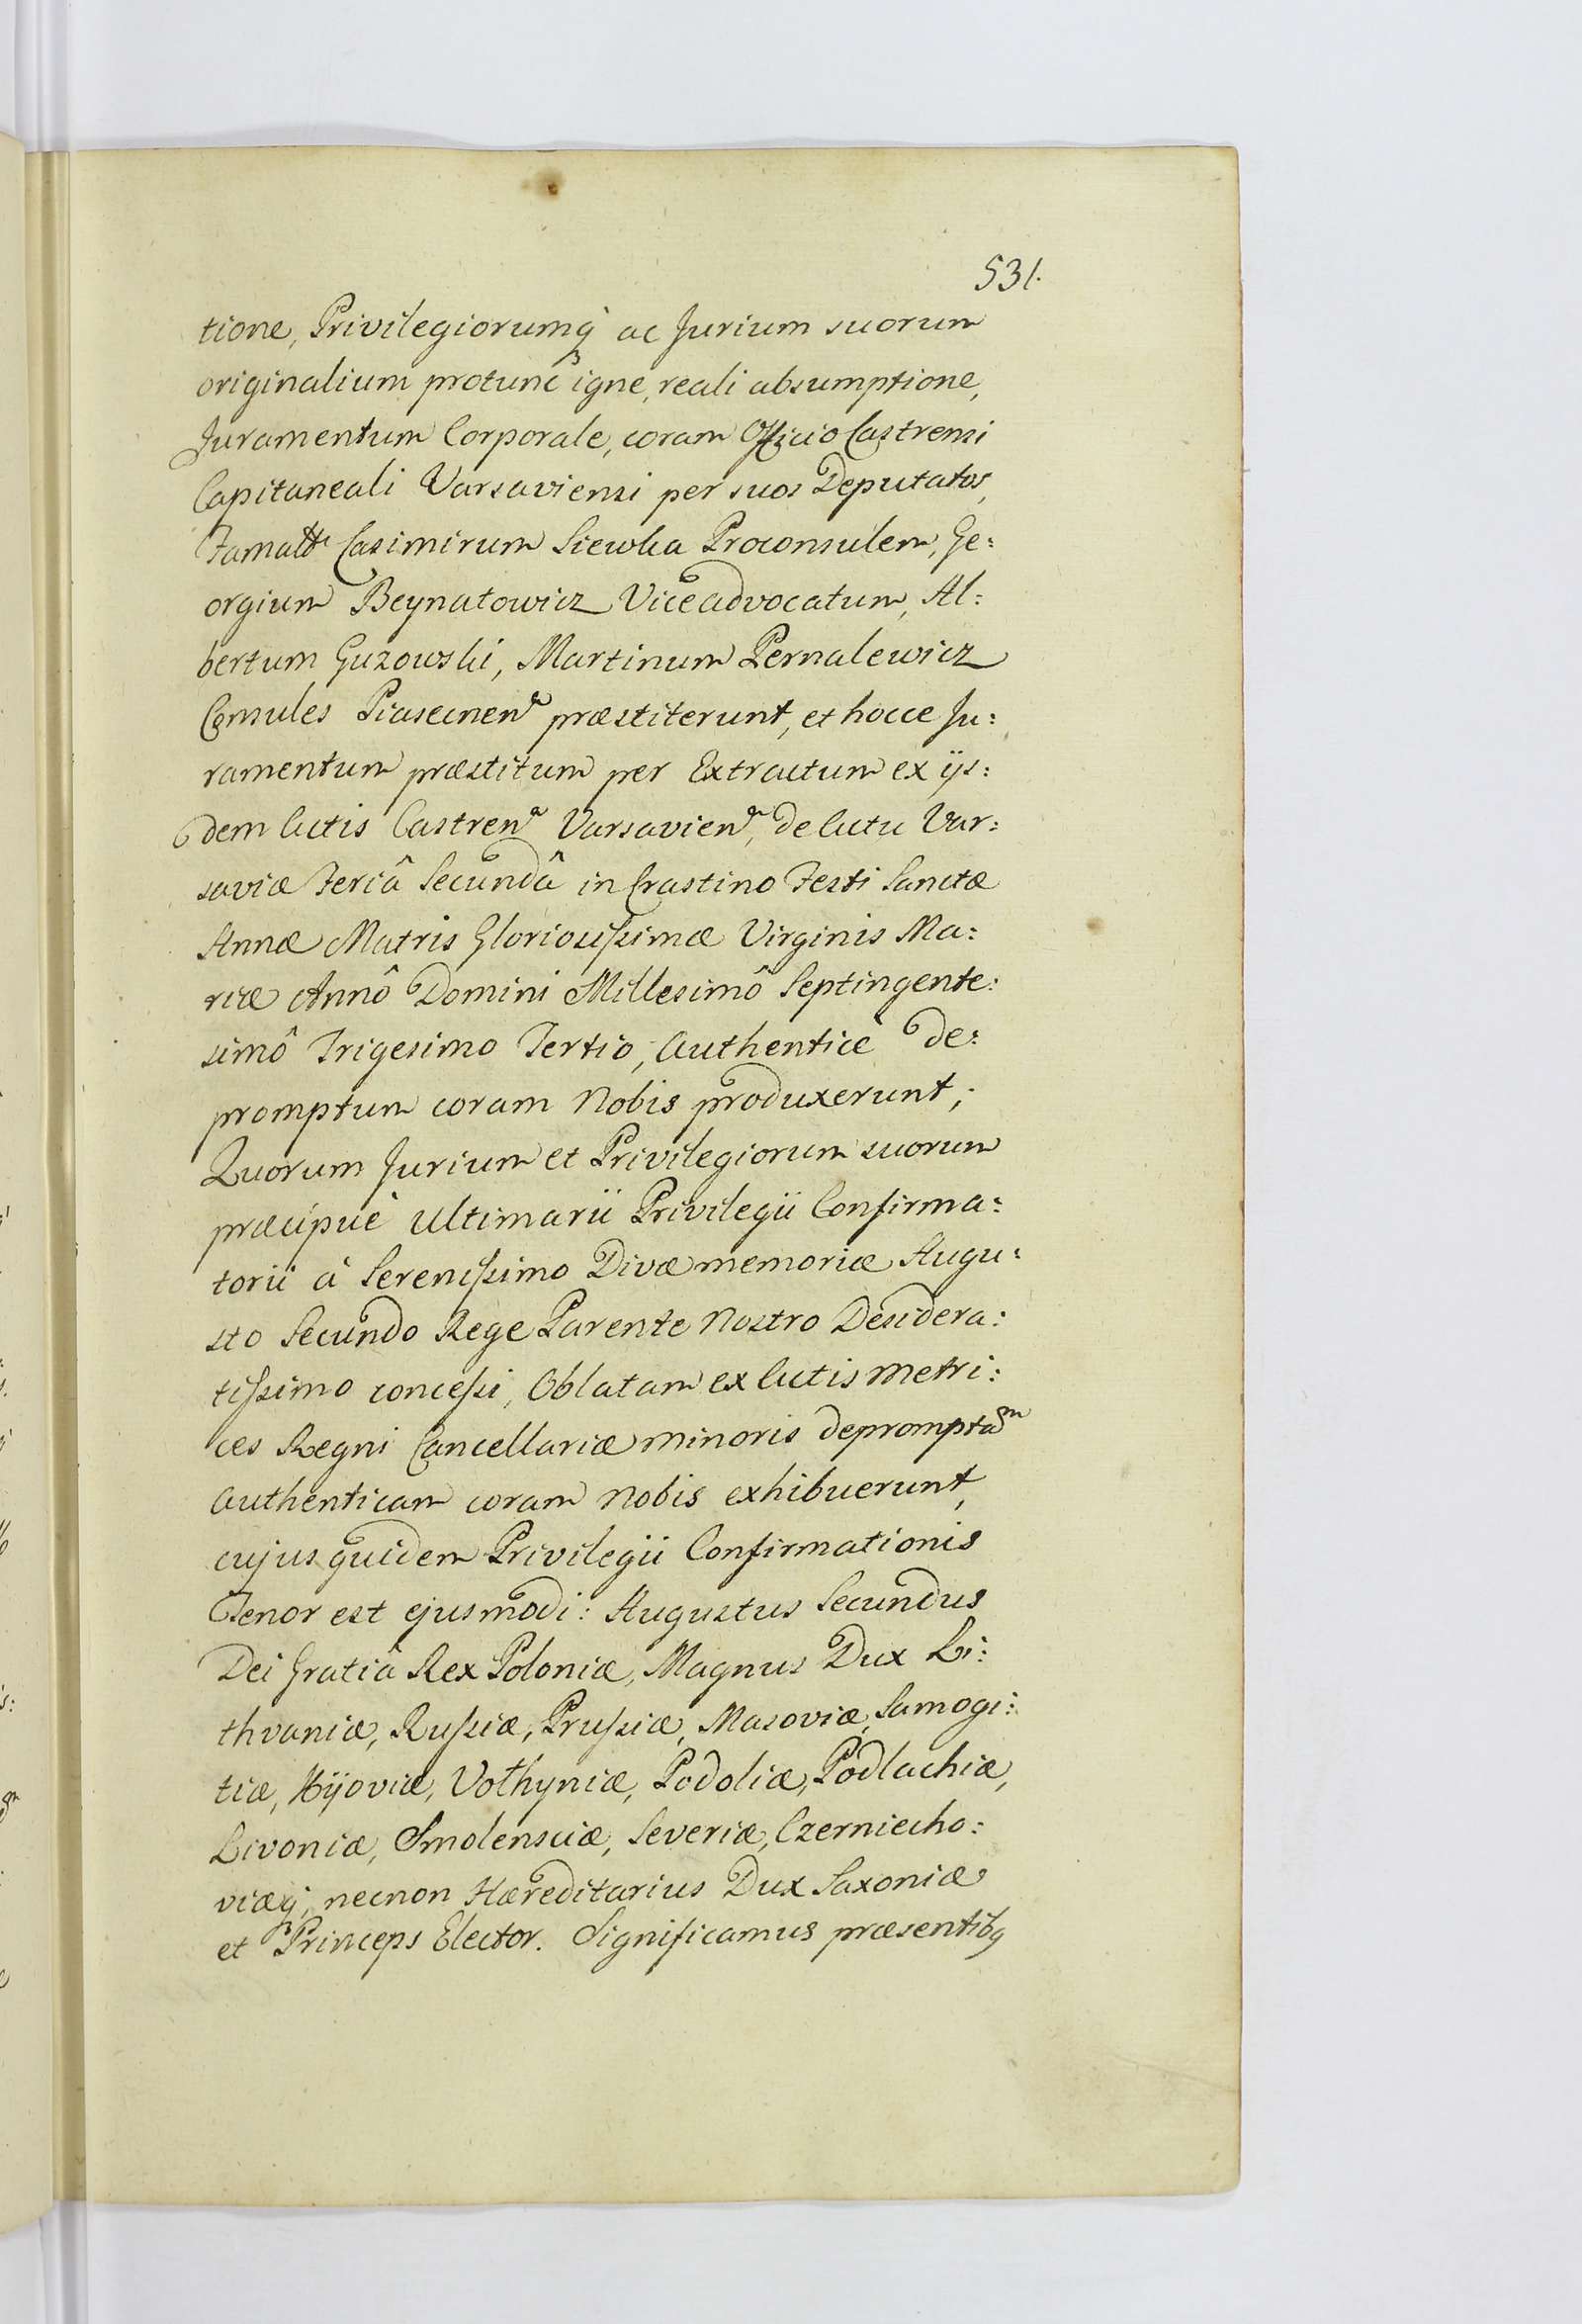 531.
tione, Privilegiorumq́ ac Jurium suorum
originalium protunc igne, reali absumptione,
Juramentum Corporale, coram Officio Castrensi
Capitaneali Varsaviensi per suos Deputatos,
Casimirum Siewka Proconsulem, Ge:
orgium Beynatowicz Viceadvocatum, Al:
bertum Guzowski, Martinum Pernalewicz
Consules Piasecnen præstiterunt, et hocce Ju:
ramentum præstitum per Extractum ex ijs:
dem Actis Castren Varsavien, de Actu Var:
saviæ Feriâ Secundâ in Crastino Festi Sanctæ
Annæ Matris Gloriosissimæ Virginis Ma:
riæ Annô Domini Millesimô Septingente:
simô Trigesimo Tertio, Authenticè de:
promptum coram Nobis produxerunt;
Quorum Jurium et Privilegiorum suorum
præcipuè Ultimarii Privilegii Confirma:
torii à Serenissimo Divæ memoriæ Augu:
sto Secundo Rege Parente Nostro Desidera:
tissimo concessi, Oblatam ex Actis Metri:
ces Regni Cancellariæ minoris depromptam
Authenticam coram Nobis exhibuerunt,
cujus quidem Privilegii Confirmationis
Tenor est ejusmodi: Augustus Secundus
Dei Gratiâ Rex Poloniæ, Magnus Dux Li:
thvaniæ, Russiæ, Prussiæ, Masoviæ, Samogi:
tiæ, Kijoviæ, Volhyniæ, Podoliæ, Podlachiæ,
Livoniæ, Smolensciæ, Severiæ, Czerniecho:
viæq́, necnon Hæreditarius Dux Saxoniæ
et Princeps Elector. Significamus præsentibq